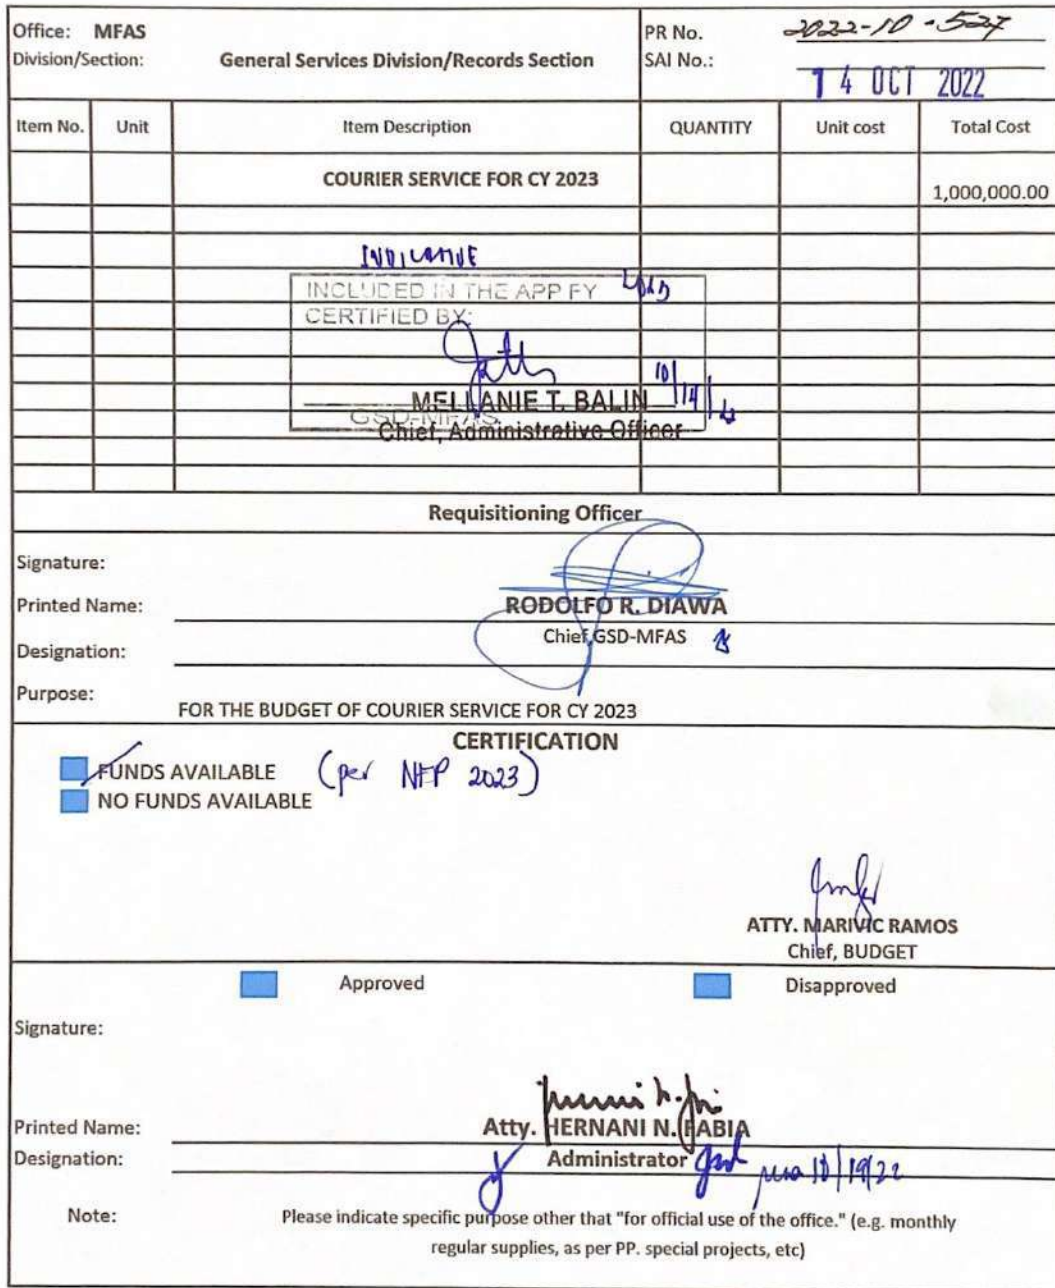 Office: MFAS
PR No. 2022-10-527
Division/Section: General Services Division/Records Section
SAI No.:
14 OCT 2022
Item No. Unit Item Description QUANTITY Unit cost Total Cost
COURIER SERVICE FOR CY 2023
1,000,000.00
INDICATIVE
INCLUDED IN THE APP FY
CERTIFIED BY:
MELLANIE T. BALIN
10/14/
GSD-MFAS
Chief, Administrative Officer
Requisitioning Officer
Signature:
Printed Name: RODOLFO R. DIAWA
Chief, GSD-MFAS
Designation:
Purpose: FOR THE BUDGET OF COURIER SERVICE FOR CY 2023
CERTIFICATION
FUNDS AVAILABLE (per NEP 2023)
NO FUNDS AVAILABLE
ATTY. MARIVIC RAMOS
Chief, BUDGET
Approved Disapproved
Signature:
Printed Name: Atty. HERNANI N. FABIA
Designation: Administrator
10/19/22
Note: Please indicate specific purpose other that "for official use of the office." (e.g. monthly
regular supplies, as per PP. special projects, etc)